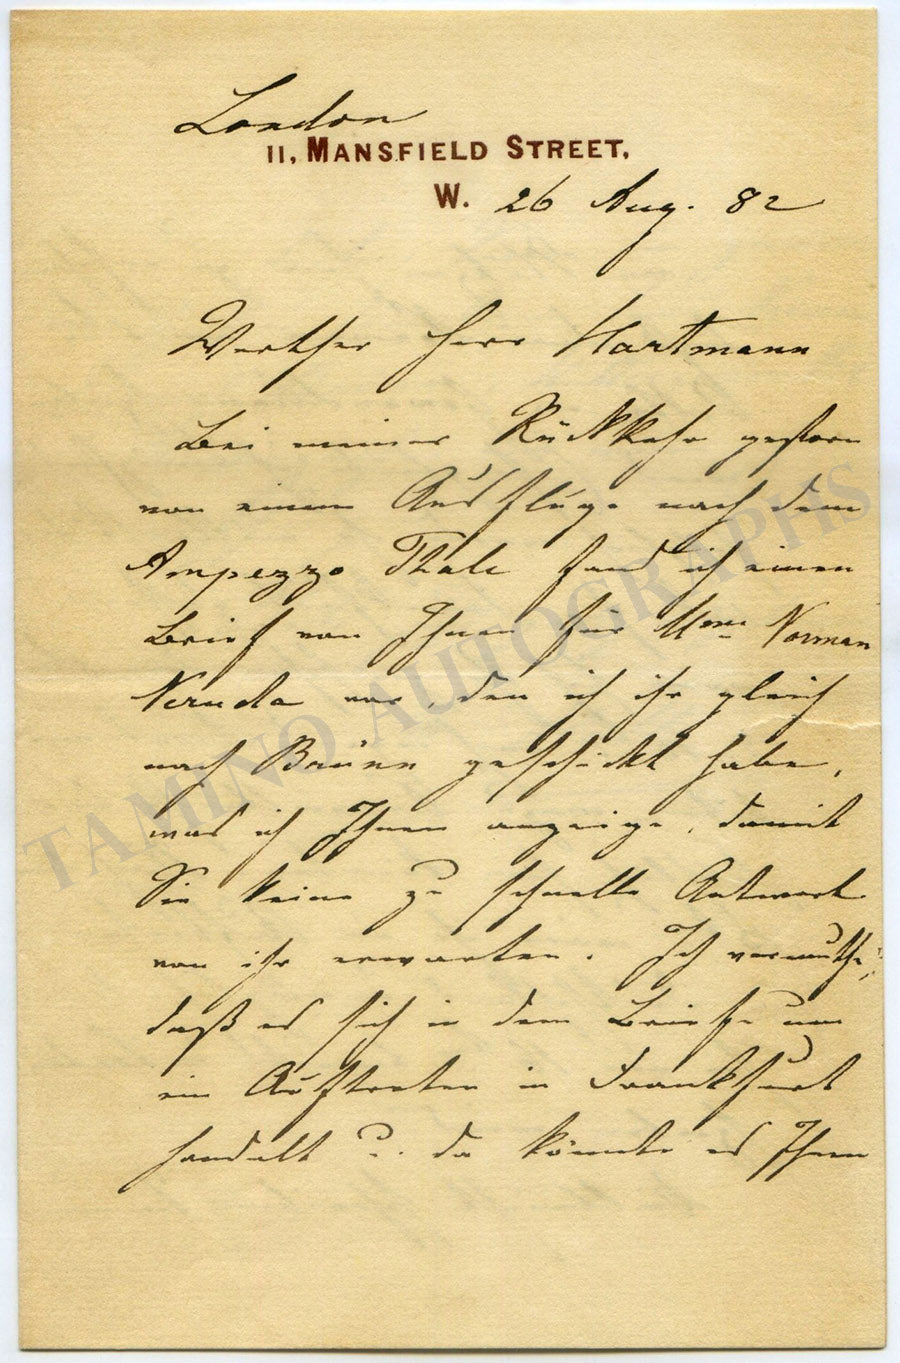 London
11, MANSFIELD STREET,
W. 26 Aug. 82
Werther Herr Hartmann
Bei meiner Rückkehr gestern
von einem Ausfluge nach dem
Ampezzo Thale fand ich einen
Brief von Ihnen für Mme Norman
Neruda vor, den ich ihr gleich
nach Brünn geschickt habe,
was ich Ihnen anzeige, damit
Sie keine zu schnelle Antwort
von ihr erwarten. Ich vermuthe,
daß es sich in dem Briefe um
ein Auftreten in Frankfurt
handelt?. da könnte es Ihnen
TAMINO AUTOGRAPHS